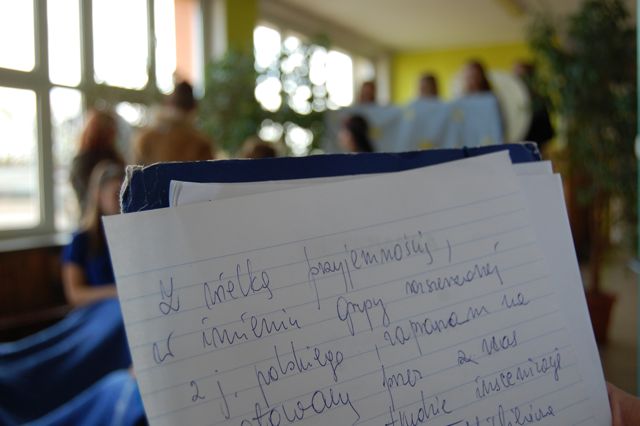 Z wielką przyjemnością,
w imieniu grupy rozszerzonej
z j. polskiego, zapraszam na
przez z nas
inscenizację